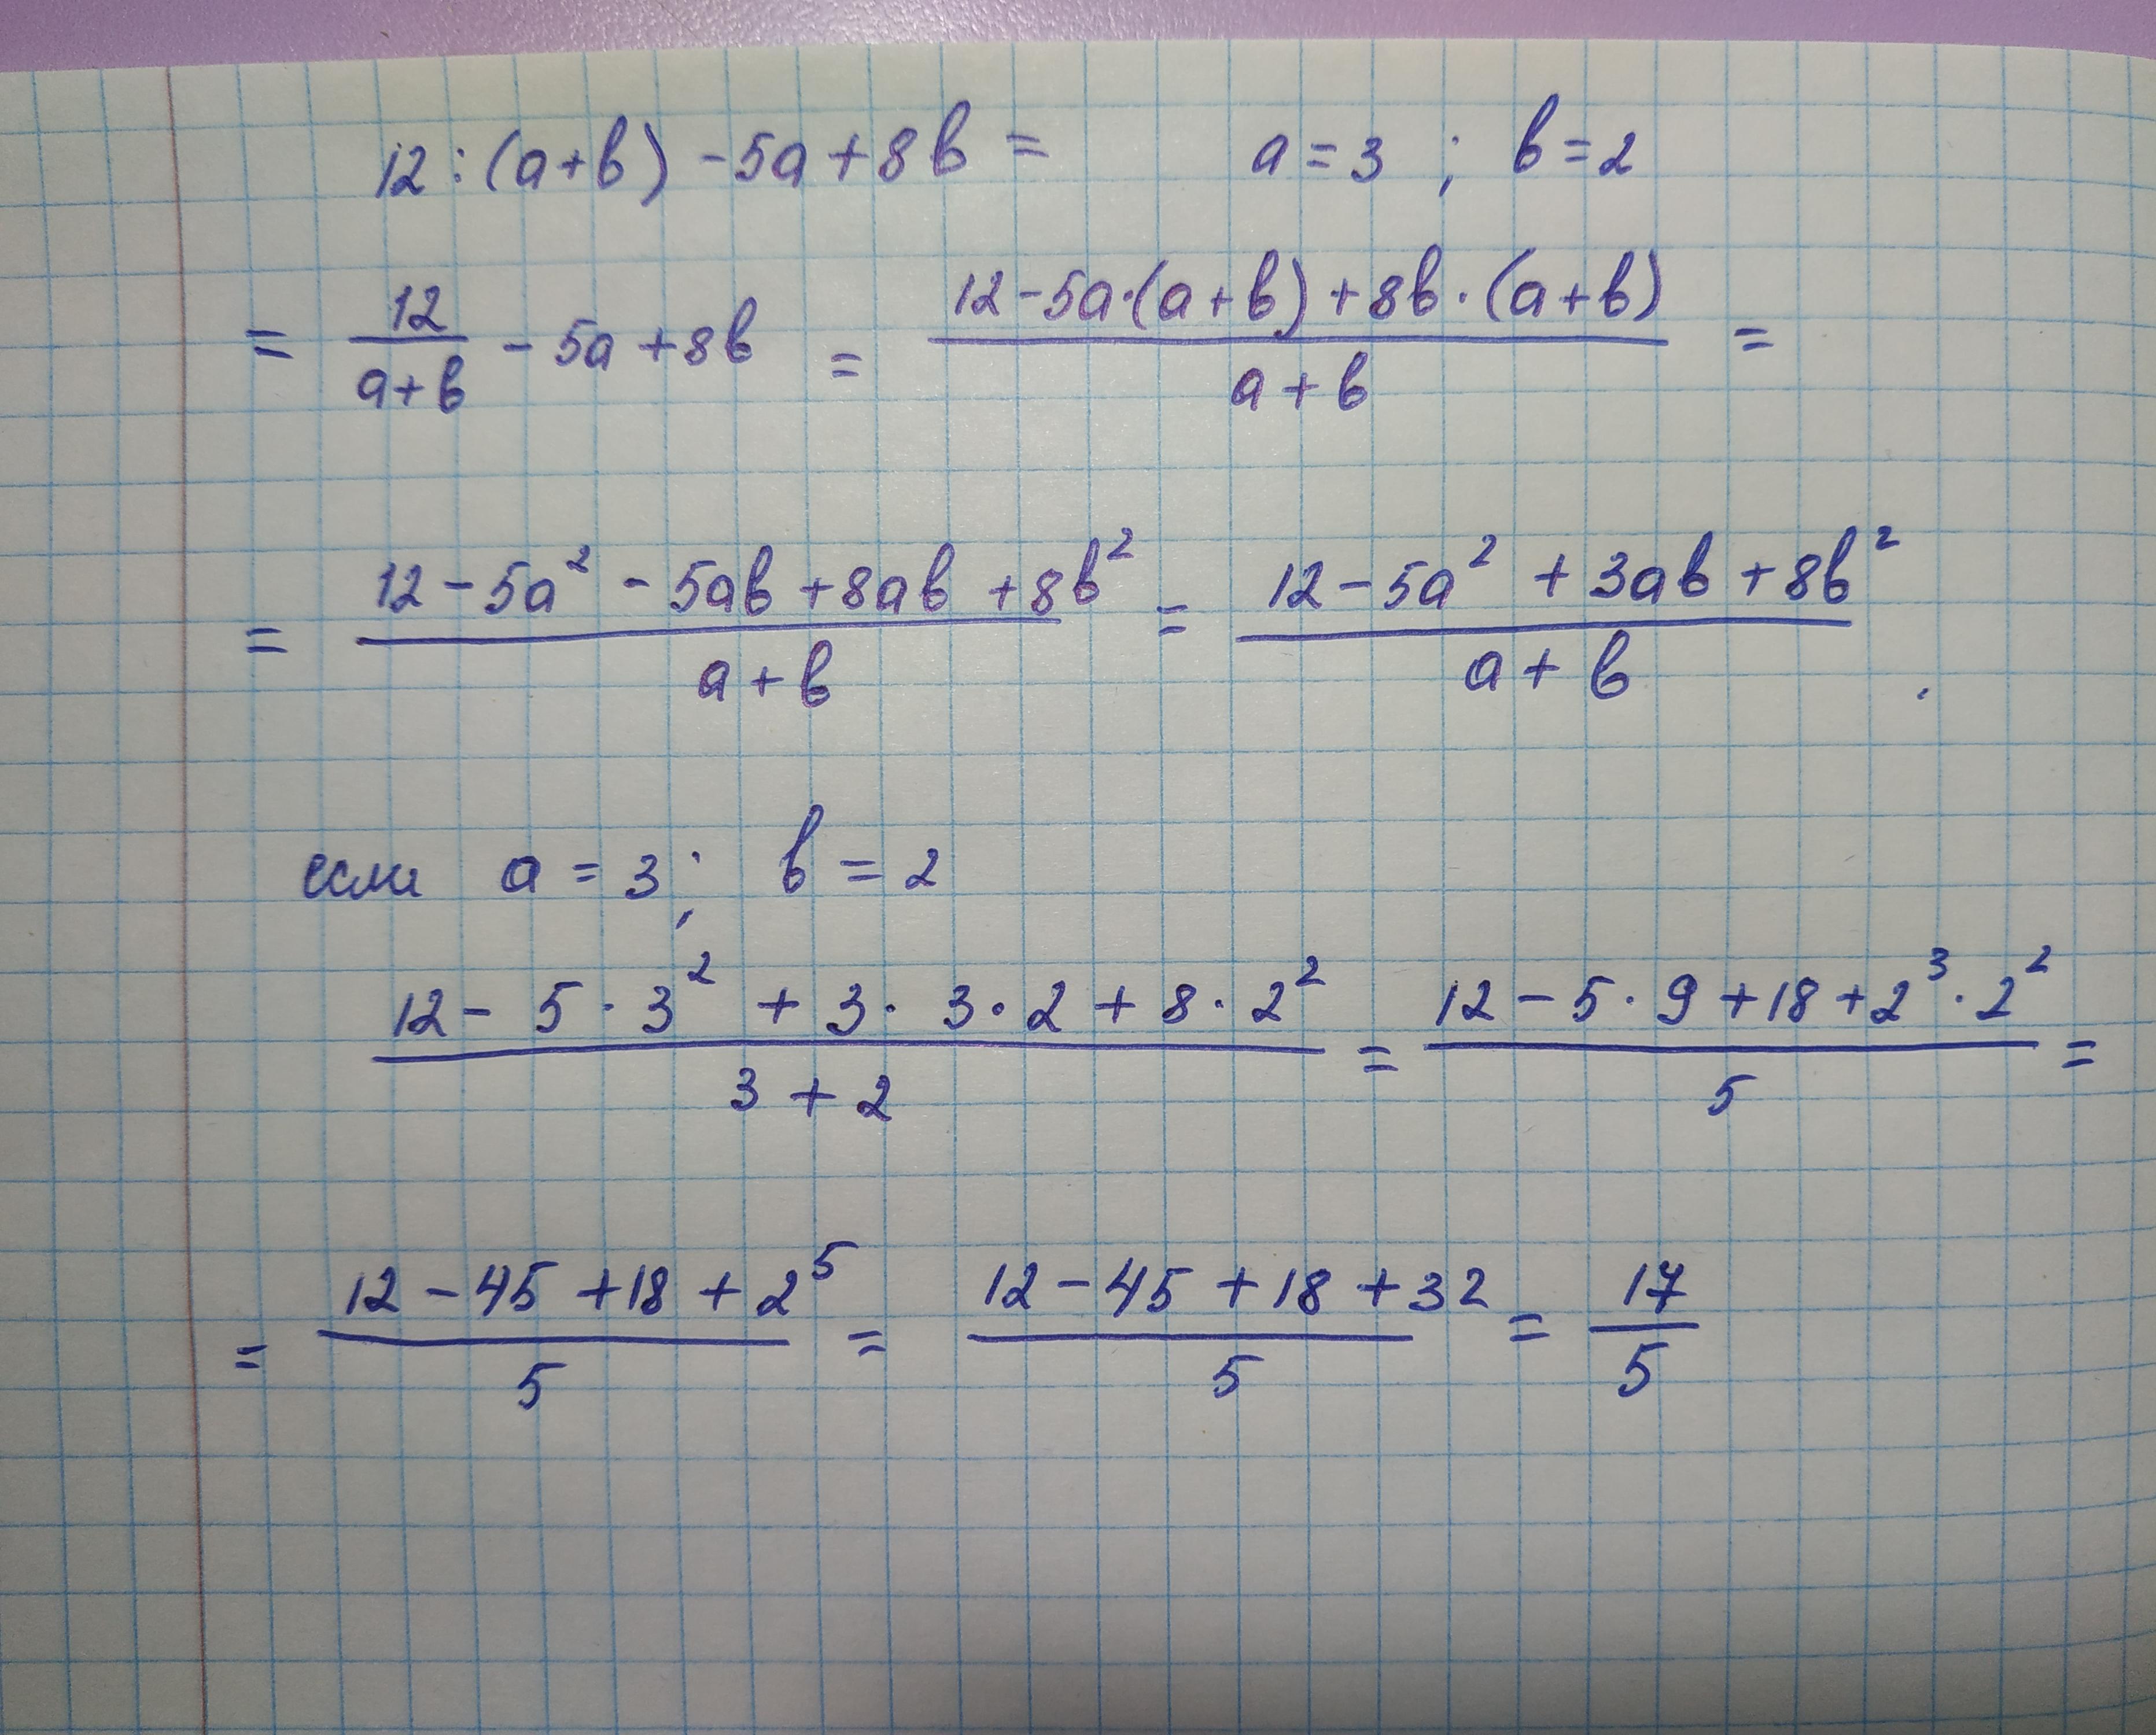 12 : (a+b) - 5a + 8b =     a = 3 ; b = 2
= \frac{12}{a+b} - 5a + 8b = \frac{12 - 5a·(a+b) + 8b·(a+b)}{a+b} =
= \frac{12 - 5a² - 5ab + 8ab + 8b²}{a+b} = \frac{12 - 5a² + 3ab + 8b²}{a+b} .
если a = 3 ; b = 2
\frac{12 - 5·3² + 3·3·2 + 8·2²}{3+2} = \frac{12 - 5·9 + 18 + 2³·2²}{5} =
= \frac{12 - 45 + 18 + 2⁵}{5} = \frac{12 - 45 + 18 + 32}{5} = \frac{17}{5}